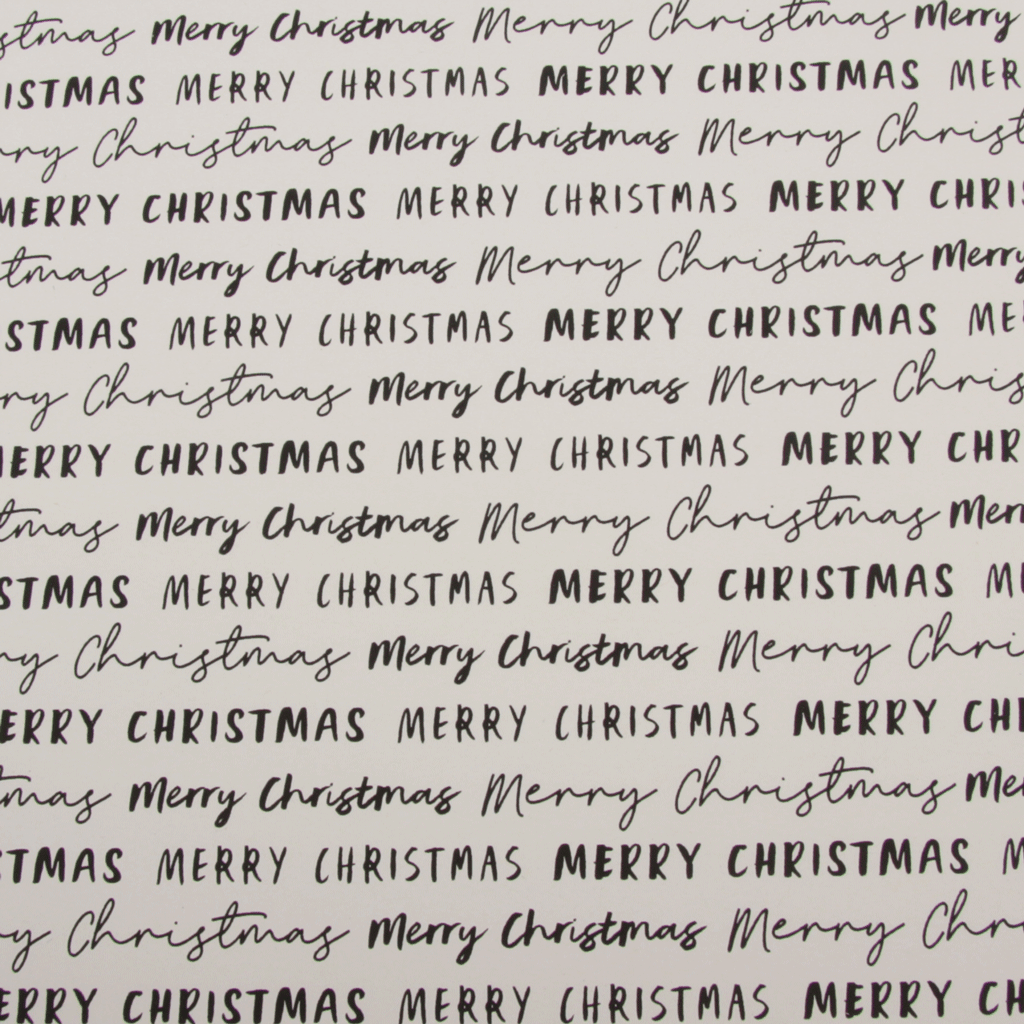 stmas Merry Christmas Merry Christmas Merry
ISTMAS MERRY CHRISTMAS MERRY CHRISTMAS MER
rry Christmas Merry Christmas Merry Christ
MERRY CHRISTMAS MERRY CHRISTMAS MERRY CHRIS
tmas Merry Christmas Merry Christmas Merry
STMAS MERRY CHRISTMAS MERRY CHRISTMAS ME
ry Christmas Merry Christmas Merry Chris
MERRY CHRISTMAS MERRY CHRISTMAS MERRY CHR
tmas Merry Christmas Merry Christmas Merr
STMAS MERRY CHRISTMAS MERRY CHRISTMAS ME
ry Christmas Merry Christmas Merry Chri
ERRY CHRISTMAS MERRY CHRISTMAS MERRY CHI
tmas Merry Christmas Merry Christmas Mer
TMAS MERRY CHRISTMAS MERRY CHRISTMAS M
ry Christmas Merry Christmas Merry Chr
ERRY CHRISTMAS MERRY CHRISTMAS MERRY CH